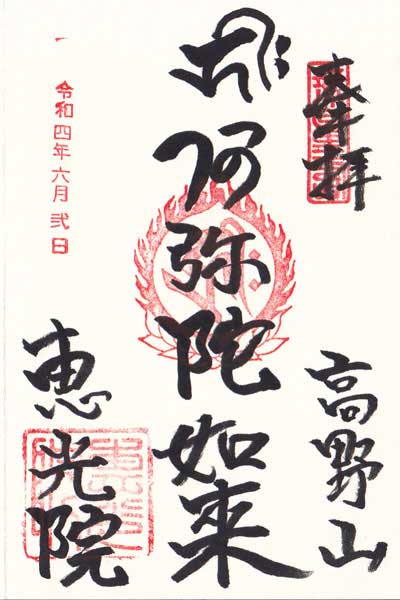 奉拝
高野山
阿弥陀如来
令和四年六月弐日
恵光院